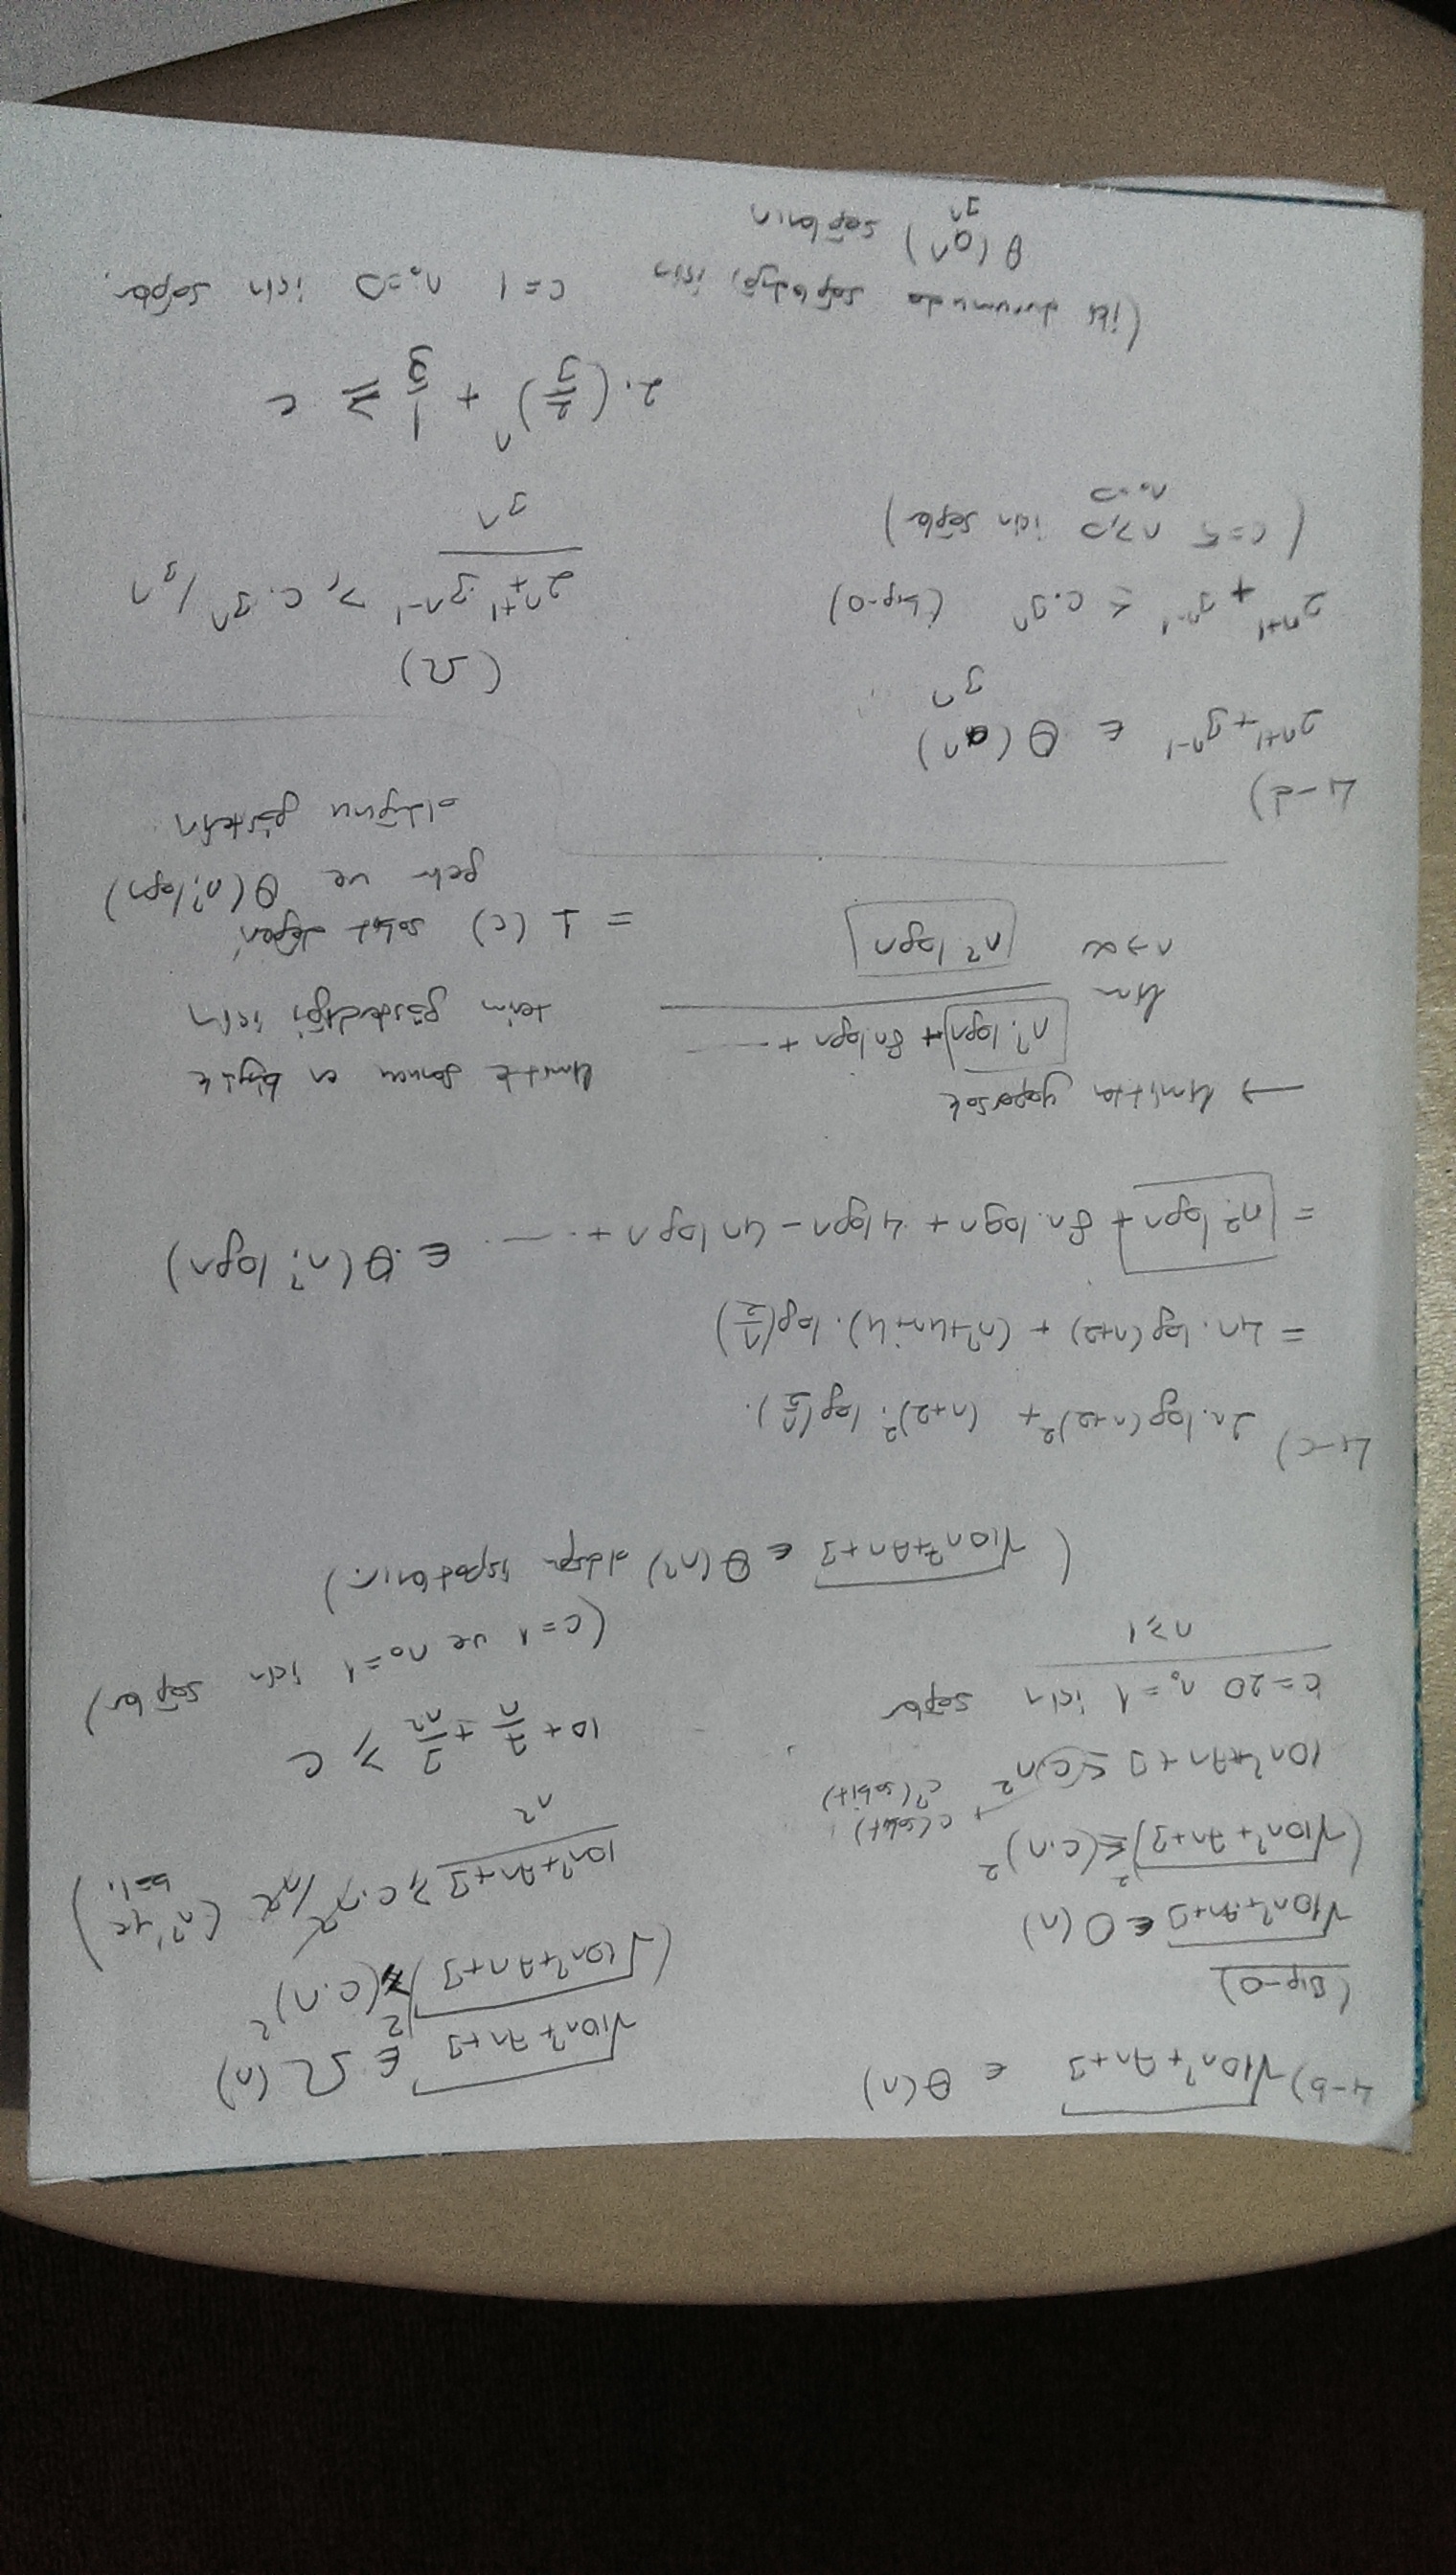 4-b) √(10n²+7n+3) ∈ θ(n)
(Big-O)
√(10n²+7n+3) ∈ O(n)
(√(10n²+7n+3))² ≤ (c.n)²
10n²+7n+3 ≤ c.n² → c(sabit)
c²(sabit)
c=20 n₀=1 için sağlar
n≥1
√(10n²+7n+3) ∈ Ω(n)
(√(10n²+7n+3))² ≥ (c.n)²
(10n²+7n+3)/n² ≥ c.n²/n² (n²'ye böl.)
10 + 7/n + 3/n² ≥ c
(c=1 ve n₀=1 için sağlar)
(√(10n²+7n+3) ∈ θ(n²) olduğu ispatlanır.)
4-c)
2n.log(n+2)² + (n+2)². log(n/2).
= 4n.log(n+2) + (n²+4n+4). log(n/2)
= n² logn + 8n.logn + 4logn - 4n logn + ...... ∈ θ(n². logn)
→ limitten yaparsak
lim n→∞ (n². logn + 8n.logn + ......)/(n² logn)
limitte sonucu en büyük
terim gösterdiği için
= 1 (c) sabit değeri
gelir ve θ(n².logn)
olduğunu gösterir
4-d)
2ⁿ⁺¹+3ⁿ⁻¹ ∈ θ(aⁿ)
3ⁿ
2ⁿ⁺¹ + 3ⁿ⁻¹ ≤ c.3ⁿ (big-O)
(c=5 n≥0 için sağlar)
n₀=0
(Ω)
(2ⁿ⁺¹ + 3ⁿ⁻¹)/3ⁿ ≥ c.3ⁿ/3ⁿ
2.(2/3)ⁿ + 1/3 ≥ c
c=1 n₀=0 için sağlar.
(iki durumuda sağladığı için
θ(aⁿ) sağlanır
3ⁿ